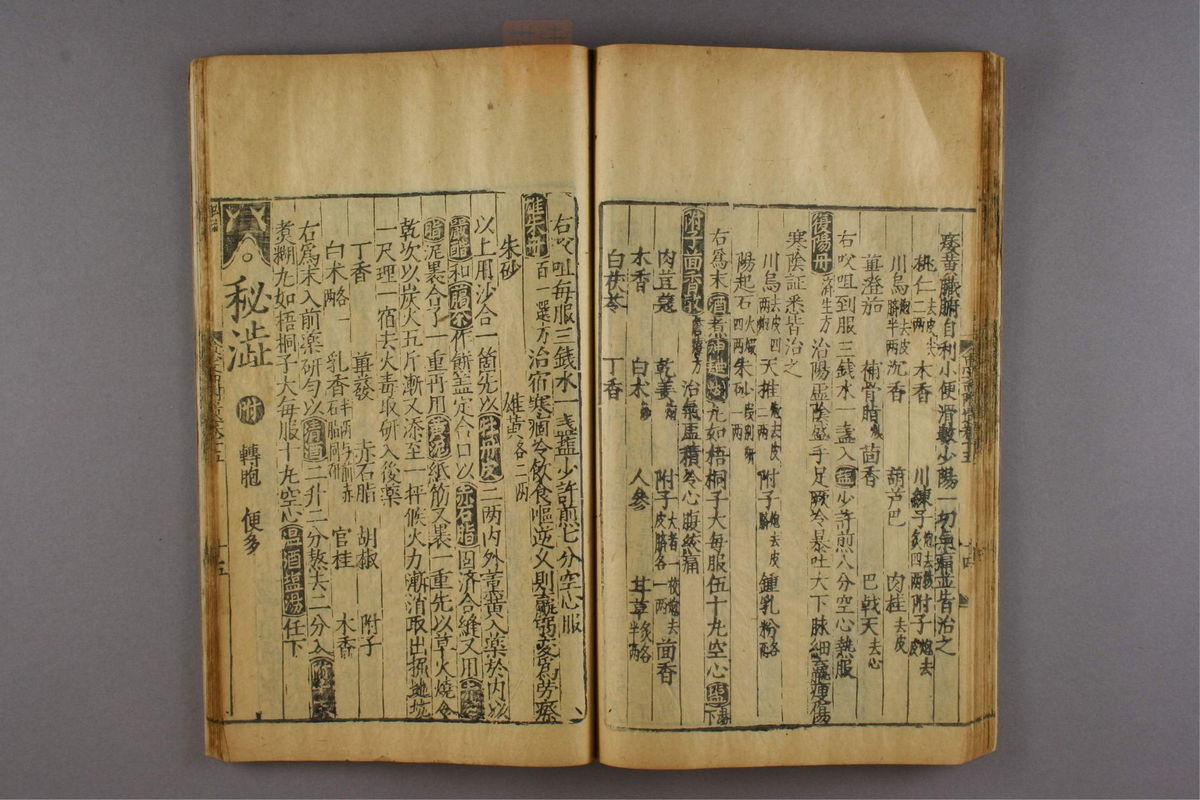 痿黃臟腑自利小便滑數少陽一切氣痛並皆治之
桃仁去皮尖二兩 木香 川練子炮去核炙四兩 附子炮去
川烏炮去皮臍半兩 沉香 葫芦巴 肉桂去皮
蓽澄茄 補骨脂 茴香 巴戟天去心
右㕮咀到服三錢水一盞入鹽少許煎八分空心熱服
復陽丹 濟生方 治陽虛陰盛手足厥冷暴吐大下脉細
寒陰証悉皆治之
川烏去皮四兩 天雄炮去皮二兩 附子炮去皮臍 鍾乳粉各兩
陽起石火煅四兩 朱砂別研一兩
右爲末酒煮神麯糊丸如梧桐子大每服伍十丸空心鹽湯下
附子茴香散 治氣虛積冷心腹絞痛
肉荳蔻 乾姜 附子大者一枚炮去皮臍各一兩 茴香
木香 白朮 人參 甘草炙各半兩
白茯苓 丁香
右㕮咀每服三錢水一盞鹽少許煎七分空心服
硃丹 百一選方 治宿寒痼冷飲食嘔逆又則爲勞瘵
朱砂 雄黃各二兩
以上用沙合一箇先以牡丹皮二兩內外熏黃入藥於內以
嚴醋和作餅蓋定合口以赤石脂固濟合縫又用赤石
脂泥裹合了一重再用黃泥紙筋又裹一重先以草火燒令
乾次以炭火五斤漸又添至一秤候火力漸消取出掘地坑
一尺埋一宿去火毒取研入後藥
丁香 蓽茇 赤石脂 胡椒 附子
白朮各一兩 乳香 官桂 木香
右爲末入前藥研勻以清酒二升二分熬去二分入
煮糊丸如梧桐子大每服十丸空心溫酒鹽湯任下
秘澁 附 轉胞 便多